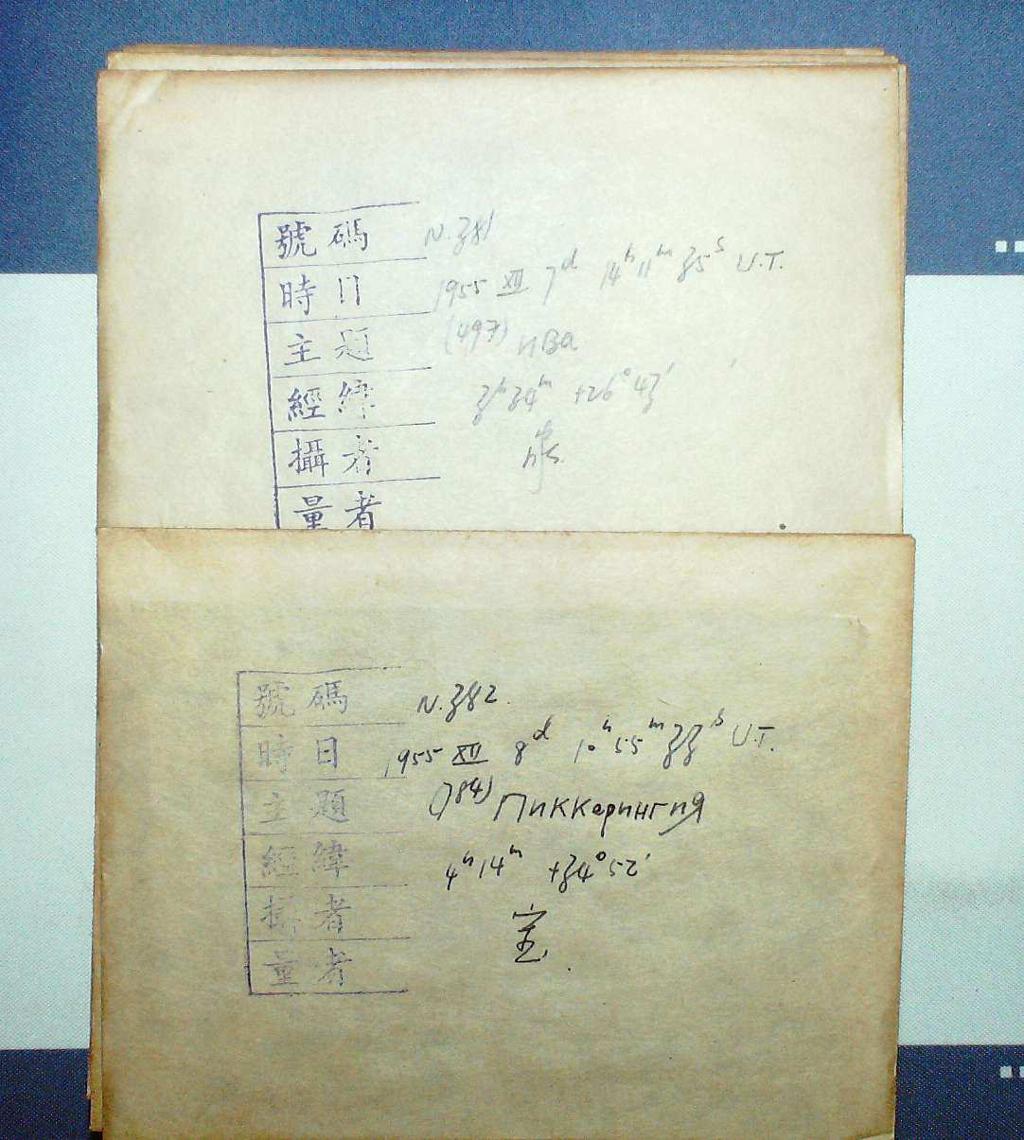 號碼 N.381
時日 1955 XII 7d 14h11m35s U.T.
主題 (497) ИВа
經緯 3h34m +26°43'
攝者
量者
號碼 N.382.
時日 1955 XII 8d 10h55m33s U.T.
主題 (784) Пиккерингия
經緯 4h14m +34°52'
攝者
量者